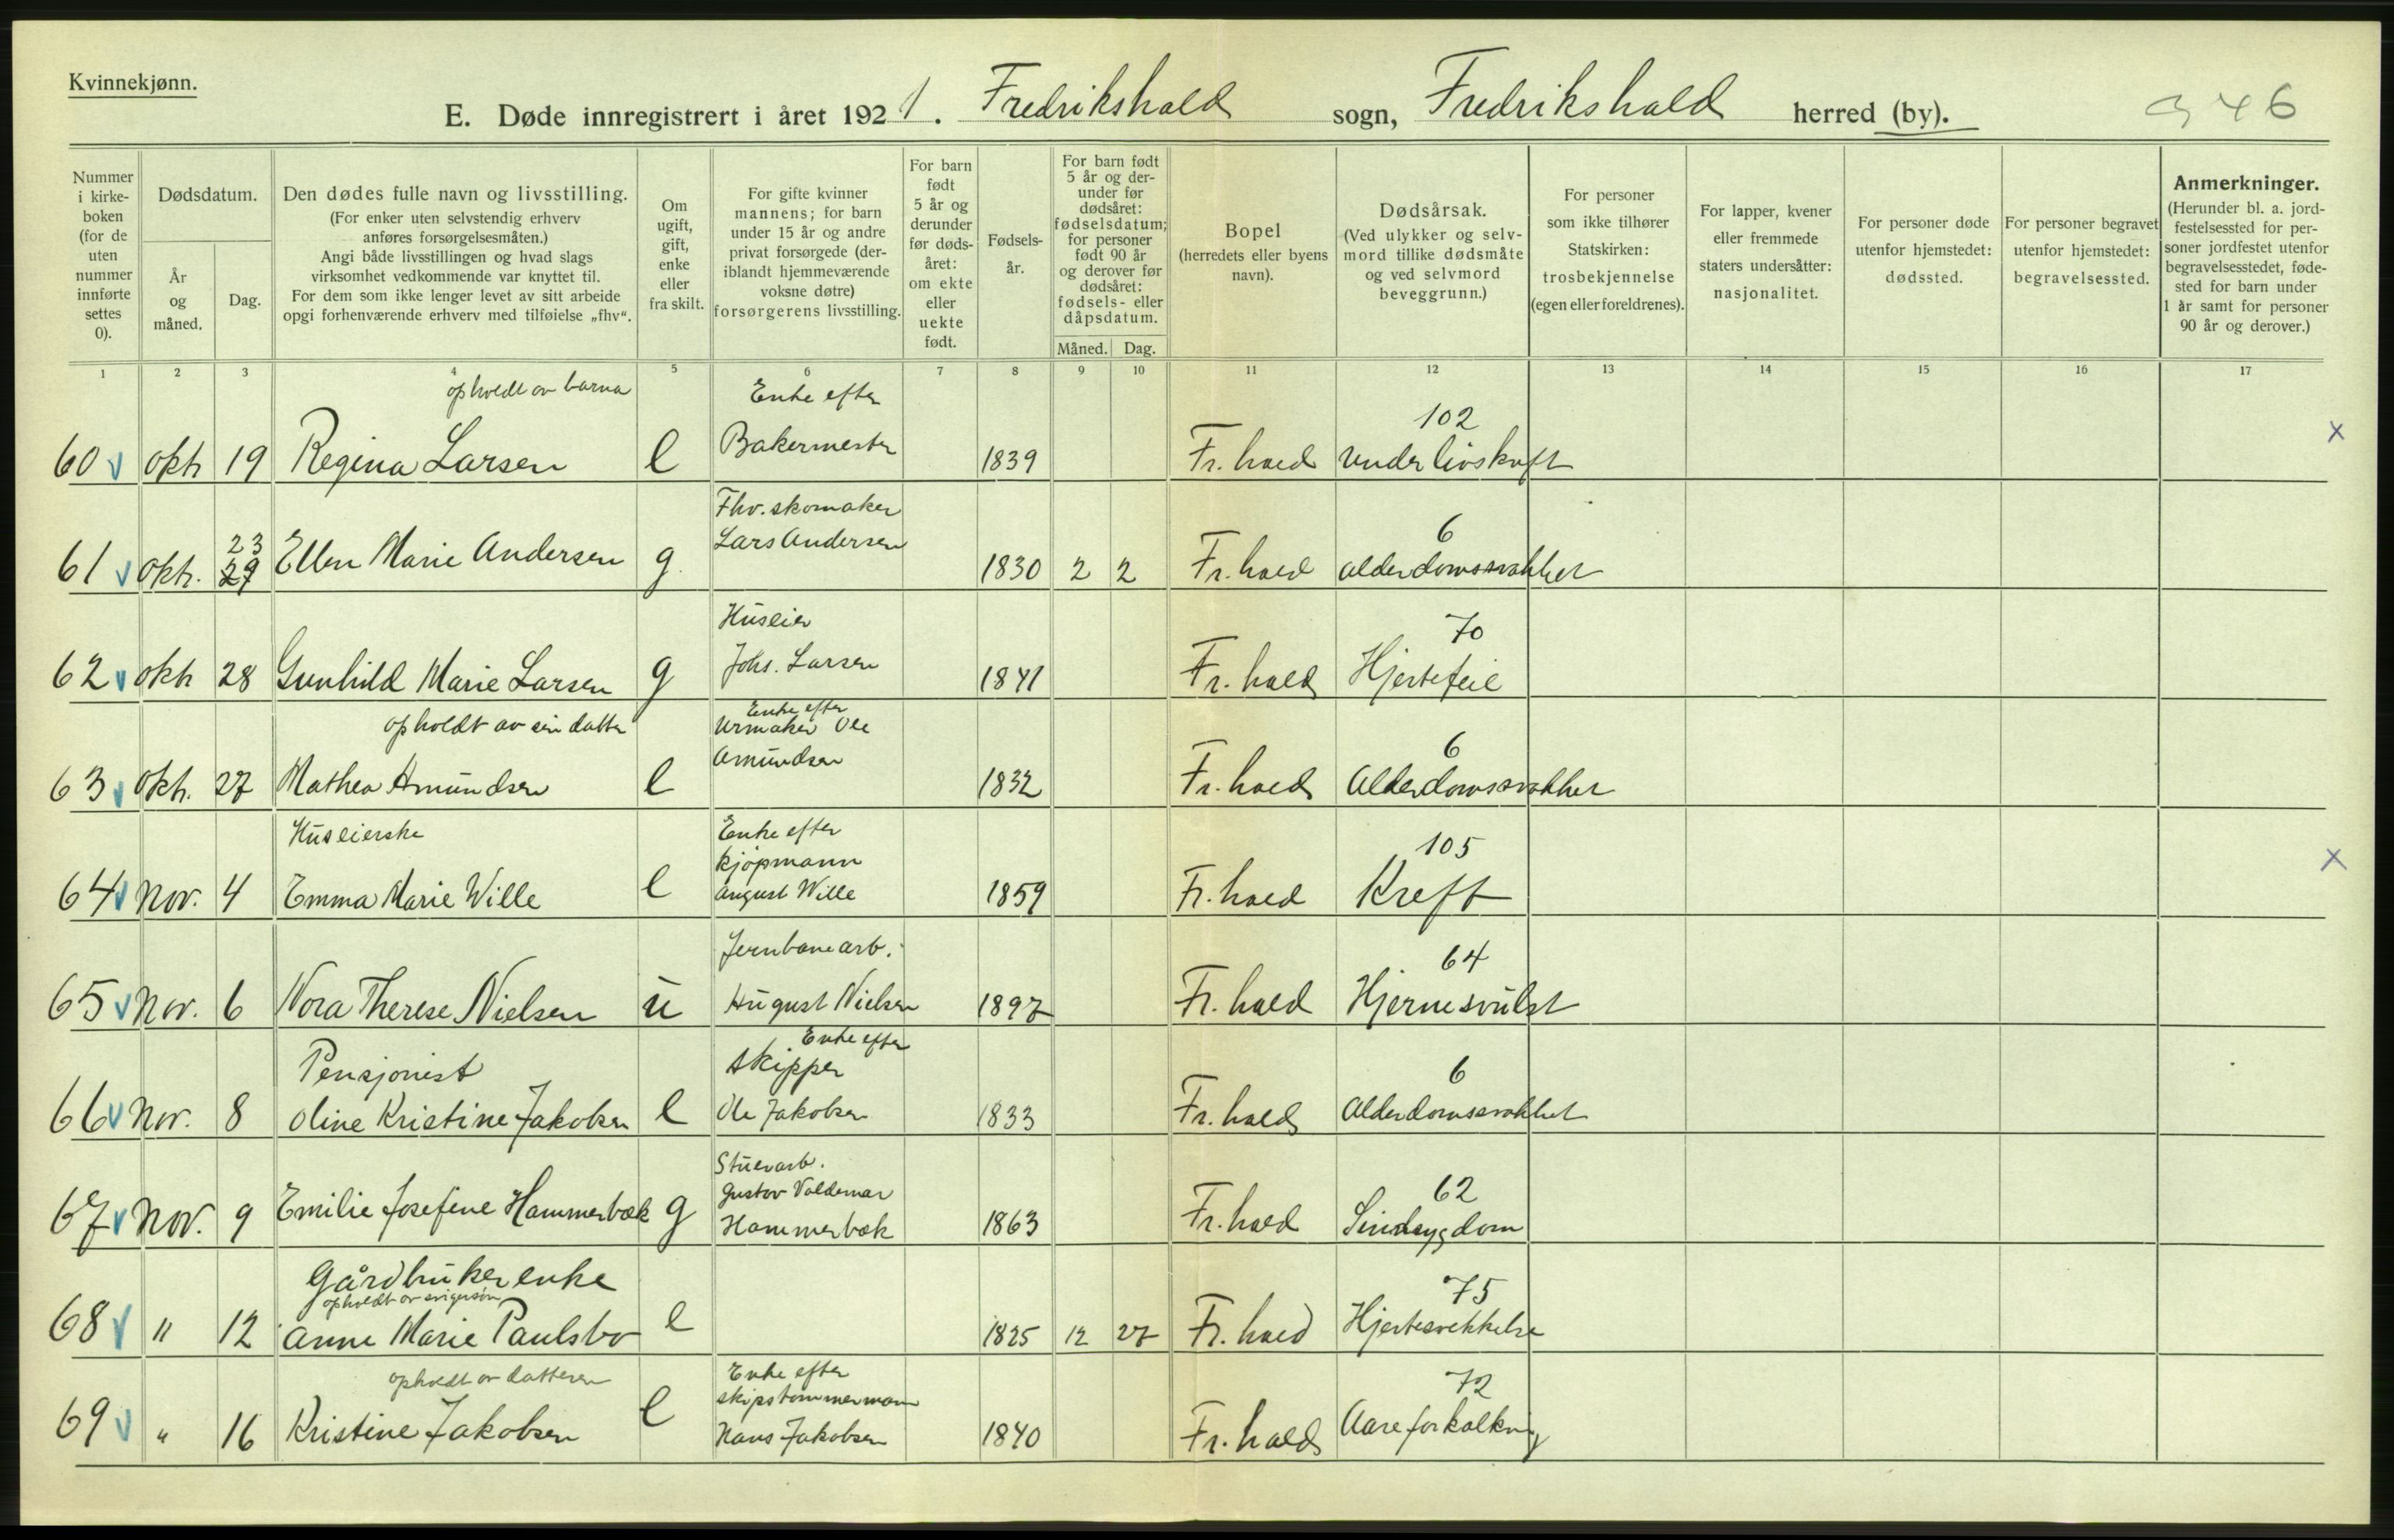 Kvinnekjønn.
E. Døde innregistrert i året 1921. Fredrikshald sogn, Fredrikshald herred (by). 346
Nummer i kirke-boken (for de uten nummer innførte settes 0).
Dødsdatum.
År og måned.
Dag.
Den dødes fulle navn og livsstilling.
(For enker uten selvstendig erhverv anføres forsørgelsesmåten.)
Angi både livsstillingen og hvad slags virksomhet vedkommende var knyttet til.
For dem som ikke lenger levet av sitt arbeide opgi forhenværende erhverv med tilføielse „fhv“.
Om ugift, gift, enke eller fra skilt.
For gifte kvinner mannens; for barn under 15 år og andre privat forsørgede (der-iblandt hjemmeværende voksne døtre) forsørgerens livsstilling.
For barn født 5 år og derunder før døds-året: om ekte eller uekte født.
Fødsels-år.
For barn født 5 år og der-under før dødsåret: fødselsdatum; for personer født 90 år og derover før dødsåret: fødsels- eller dåpsdatum.
Måned. Dag.
Bopel (herredets eller byens navn).
Dødsårsak. (Ved ulykker og selv-mord tillike dødsmåte og ved selvmord beveggrunn.)
For personer som ikke tilhører Statskirken: trosbekjennelse (egen eller foreldrenes).
For lapper, kvener eller fremmede staters undersåtter: nasjonalitet.
For personer døde utenfor hjemstedet: dødssted.
For personer begravet utenfor hjemstedet: begravelsessted.
Anmerkninger. (Herunder bl. a. jord-festelsessted for per-soner jordfestet utenfor begravelsesstedet, føde-sted for barn under 1 år samt for personer 90 år og derover.)
1 2 3 4 5 6 7 8 9 10 11 12 13 14 15 16 17
opholdt av barna Enke efter 102
60 v okt 19 Regina Larsen e Bakermester 1839 Fr. hald Underlivskreft x
Fhv. skomaker
23 Lars Andersen 6
61 v okt. 29 Ellen Marie Andersen g. 1830 2 2 Fr. hald alderdomssvakhet
Huseier 70
62 v okt 28 Gunhild Marie Larsen g Johs. Larsen 1841 Fr. hald Hjertefeil
opholdt av sin datter Enke efter
Urmaker Ole
Amundsen 6
63 v okt. 27 Mathea Amundsen e 1832 Fr. hald Alderdomssvakhet
Huseierske Enke efter
kjøpmann 105
64 v Nov. 4 Emma Marie Wille e August Wille 1859 Fr. hald Kreft x
Jernbanearb. 64
65 v Nov. 6 Nora Therese Nielsen u August Nielsen 1897 Fr. hald Hjernesvulst
Enke efter
Pensjonist Skipper 6
66 v Nov. 8 Oline Kristine Jakobsen e Ole Jakobsen 1833 Fr. hald Alderdomssvakhet
Stuerarb.
Gustav Valdemar 62
67 v Nov. 9 Emilie Josefine Hammerbæk g Hammerbæk 1863 Fr. hald Sindsygdom
Gårdbrukerenke
opholdt av svigersøn 75
68 v " 12 Anne Marie Paulsbo e 1825 12 27 Fr. hald Hjertesvekkelse
opholdt av datteren Enke efter
skipstømmermann 72
69 v " 16 Kristine Jakobsen e Hans Jakobsen 1840 Fr. hald Aareforkalkning